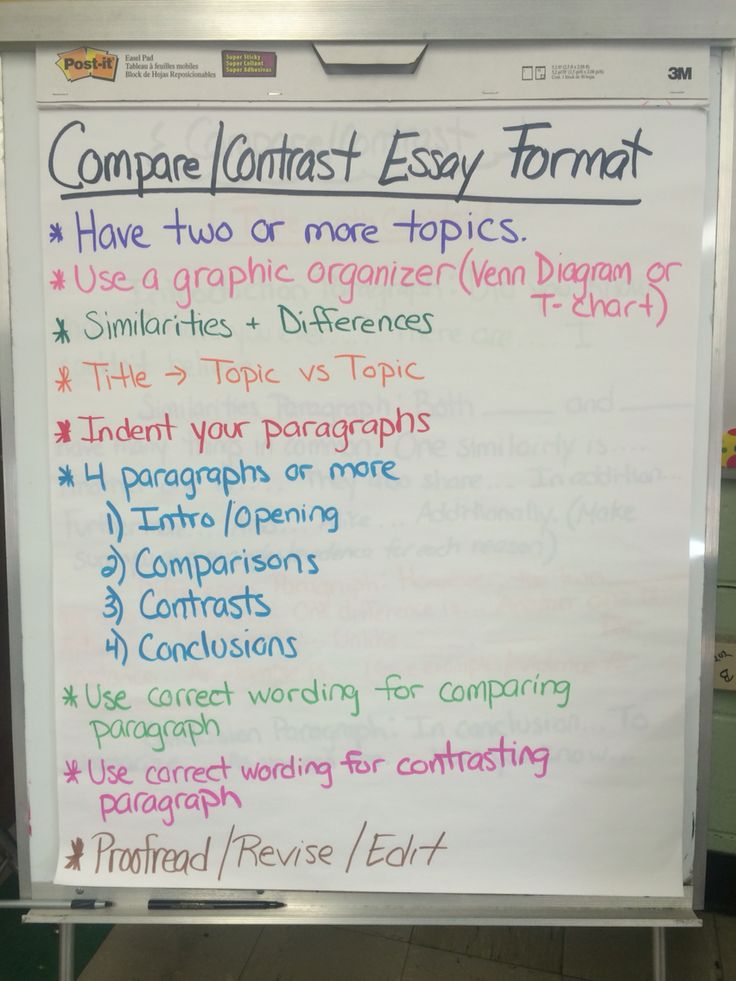 Post-it
Easel Pad
Tableau à feuilles mobiles
Block de Hojas Reposicionables
Super Sticky
Super Collant
Super Adhesivas
3M
Compare/Contrast Essay Format
* Have two or more topics.
* Use a graphic organizer (Venn Diagram or
T-chart)
* Similarities + Differences
* Title → Topic vs Topic
* Indent your paragraphs
* 4 paragraphs or more
1) Intro/Opening
2) Comparisons
3) Contrasts
4) Conclusions
* Use correct wording for comparing
paragraph
* Use correct wording for contrasting
paragraph
* Proofread/Revise/Edit